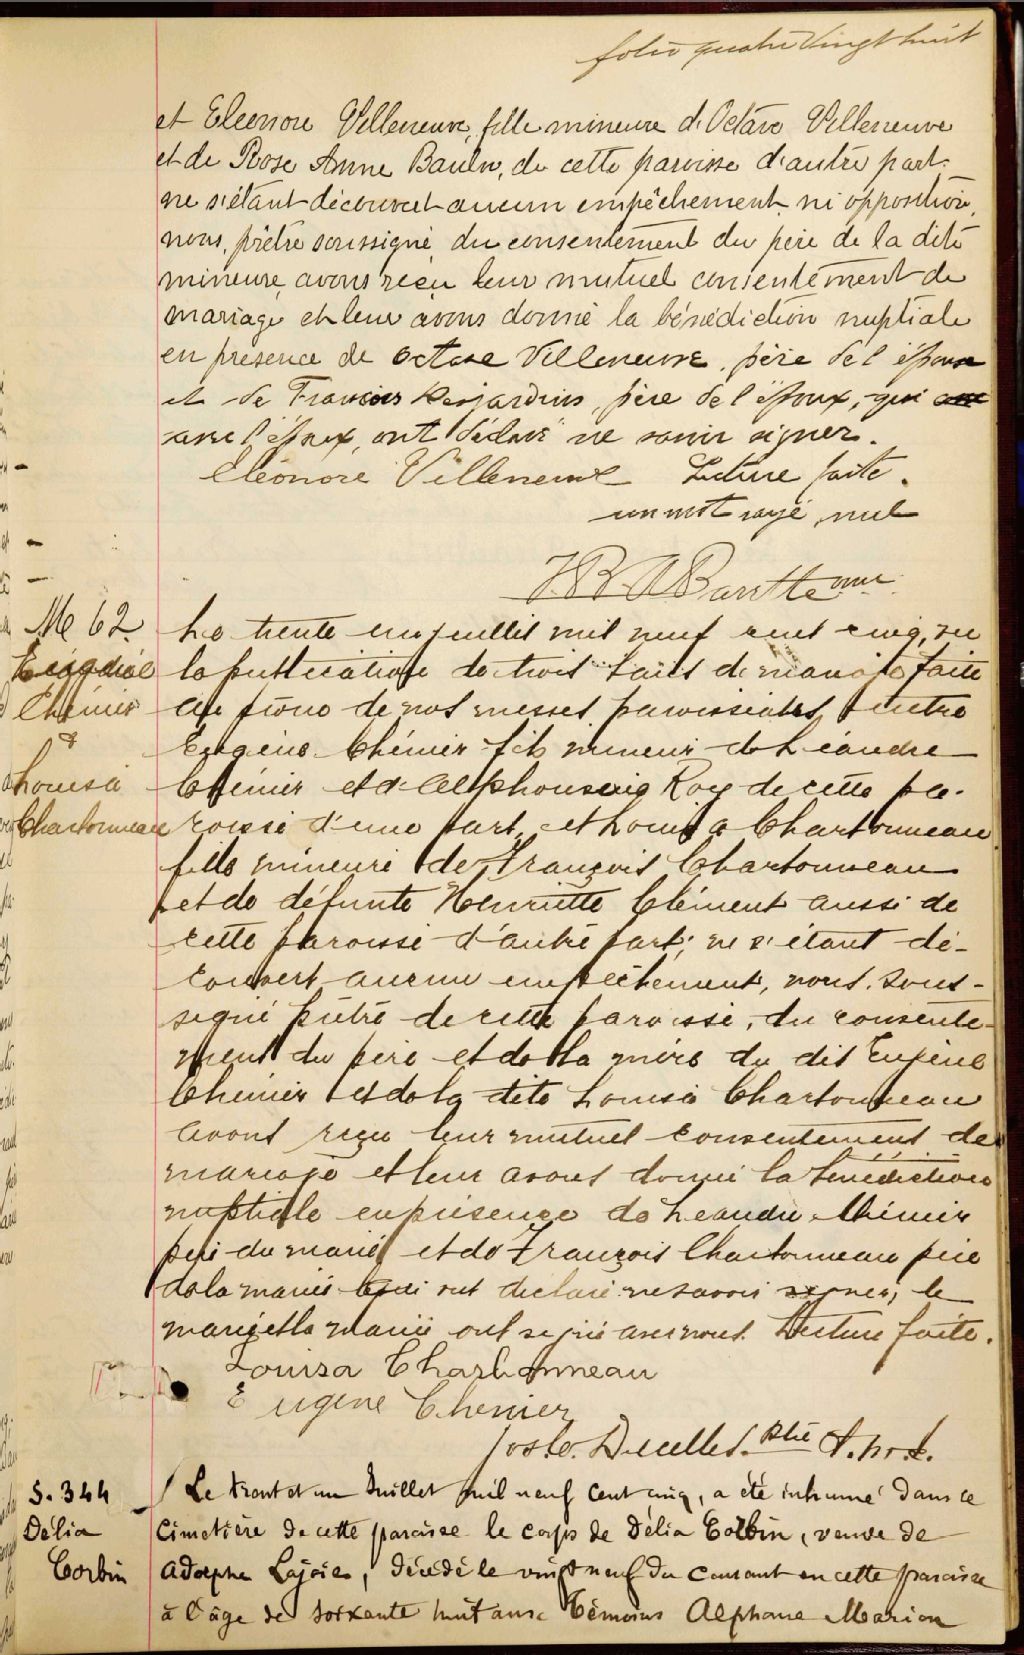 folio quatre vingt huit
et Eleonore Villeneuve, fille mineure d'Octave Villeneuve
et de Rose Anne Baulne, de cette paroisse d'autre part;
ne s'étant découvert aucun empêchement ni opposition,
nous, prêtre soussigné, du consentement du père de la dite
mineure, avons reçu leur mutuel consentement de
mariage et leur avons donné la bénédiction nuptiale
en presence de Octave Villeneuve, père de l'épouse
et de Francois Desjardins, père de l'époux, qui
avec l'époux, ont déclaré ne savoir signer.
Eléonore Villeneuve Lecture faite.
un mot rayé nul
J.B.A. Barette
M 62 Le trente un juillet mil neuf cent cinq, vu
Eugène la publication de trois bans de mariage faite
Chénier au prône de nos messes paroissiales entre
& Eugène Chénier fils mineur de Léandre
Louisa Chénier et d'Alphonsine Roy de cette pa-
Charbonneau roisse d'une part, et Louisa Charbonneau
fille mineure de François Charbonneau
et de défunte Henriette Clément aussi de
cette paroisse d'autre part; ne s'étant dé-
couvert aucun empêchement, nous, sous-
signé prêtre de cette paroisse, du consente-
ment du père et de la mère du dit Eugène
Chénier et de la dite Louisa Charbonneau
avons reçu leur mutuel consentement de
mariage et leur avons donné la bénédiction
nuptiale en présence de Léandre Chénier,
père du marié et de François Charbonneau père
de la mariée qui ont déclaré ne savoir signer, le
marié et la mariée ont signé avec nous. Lecture faite.
Louisa Charbonneau
Eugene Chenier
Jos. O. Decelles. Ptre
S. 344 Le trent et un Juillet mil neuf cent cinq, a été inhumé dans le
Délia cimetière de cette paroisse le corps de Délia Corbin, veuve de
Corbin Adolphe Lajoie, décédé le vingt neuf du courant en cette paroisse
à l'âge de soixante huit ans. Témoins Alphonse Marion